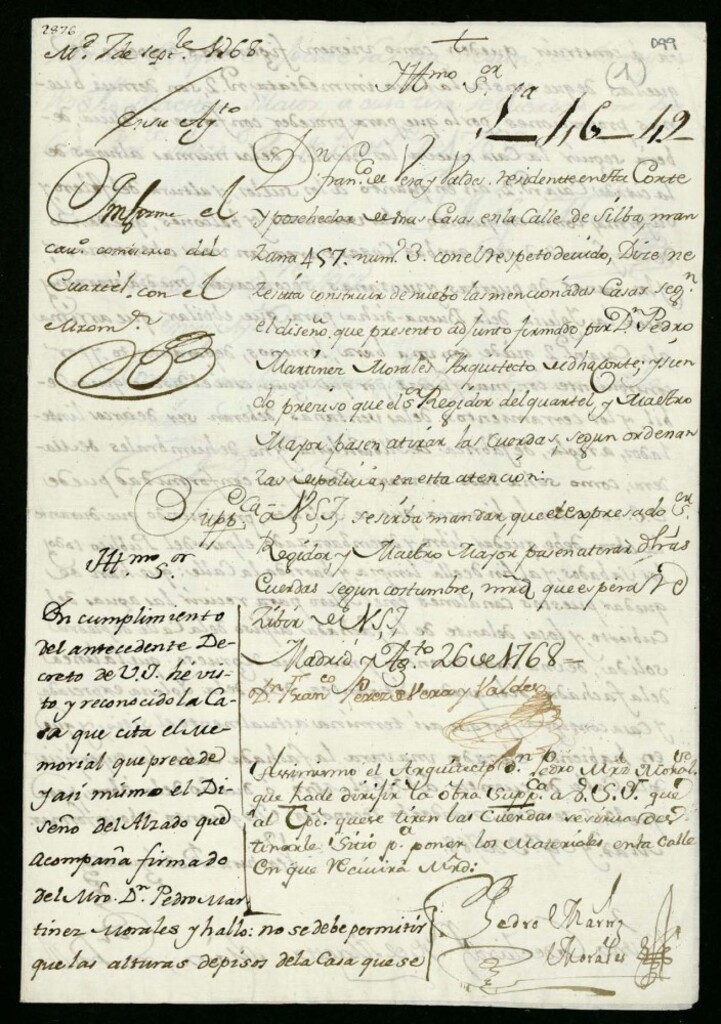 2876
099
(1)
Md. 7 de septre. 1768
Illmo Sor
1ª-46-42
En su Aytº
Informe el
cavº. comisario del
Cuartel con el
Mrº mr.
Dn. Franco. de Vera y Valdes, residente en esta Corte
y posehedor de unas Casas en la Calle de Silba, man
zana 457. num.º 3. con el respeto devido, Dize ne
zesita construir de nuebo las mencionadas Casas segn.
el diseño, que presento adjunto firmado por Dn. Pedro
Martinez Morales Arquitecto de dha corte; y sien
do preciso que el Sr. Regidor del quartel, y Maestro
Mayor pasen atirar las Cuerdas, segun ordenan
zas de policia, en esta atencion:
Suppca. a V.S.I. se sirba mandar que el expresado Sor.
Regidor, y Maestro Mayor pasen atirar dhas
Cuerdas segun costumbre, mrd. que espera Re
zibir de V.S.I.
Madrid y Agto. 26 de 1768=
Dn. Franco. Perez de Vera y Valdes
Assimismo el Arquitecto Dn. Pedro Mrz. Morales.
que ha de dirijir la obra Suppca. a V.S.I. que
al tpo. que se tiren las Cuerdas se sirva des
tinarle Sitio pa. poner los Materiales en la calle
En que Recivirá Mrd:
Pedro Marnz
Morales
Illmo. Sor.
En cumplimiento
del antecedente De-
creto de V.I. he vis-
to y reconocido la Ca-
sa que cita el Me-
morial que precede
y asi mismo el Di-
seño del Alzado que
acompaña firmado
del Mro. Dn. Pedro Mar-
tinez Morales y hallo: no se debe permitir
que las alturas de pisos de la Casa que se